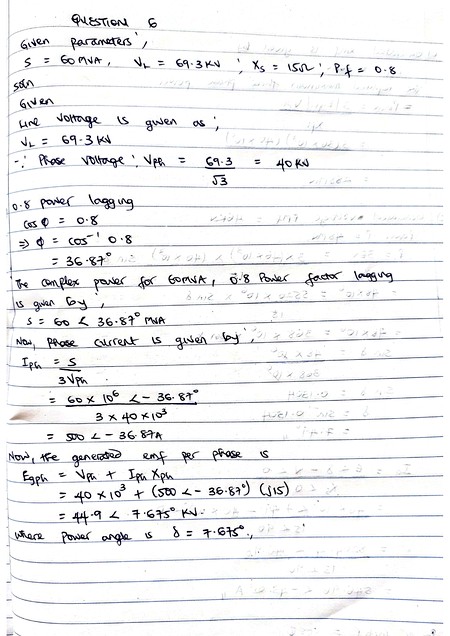 QUESTION 6
Given parameters ;
S = 60MVA, VL = 69.3KV ; Xs = 15Ω ; P.f = 0.8
soln
Given
Line Voltage is given as ;
VL = 69.3 KV
∴ Phase voltage ; Vph = 69.3/√3 = 40 KV
0.8 power lagging
cos φ = 0.8
⇒ φ = cos⁻¹ 0.8
= 36.87°
The complex power for 60MVA, 0.8 Power factor lagging
is given by ;
S = 60 < 36.87° MVA
Now, phase current is given by ;
Iph = S/3Vph
= 60 × 10⁶ < -36.87°/3 × 40 × 10³
= 500 < -36.87A
Now, the generated emf per phase is
Egph = Vph + Iph Xph
= 40 × 10³ + (500 < -36.87°) (j15)
= 44.9 < 7.675° KV.
where power angle is δ = 7.675°,,